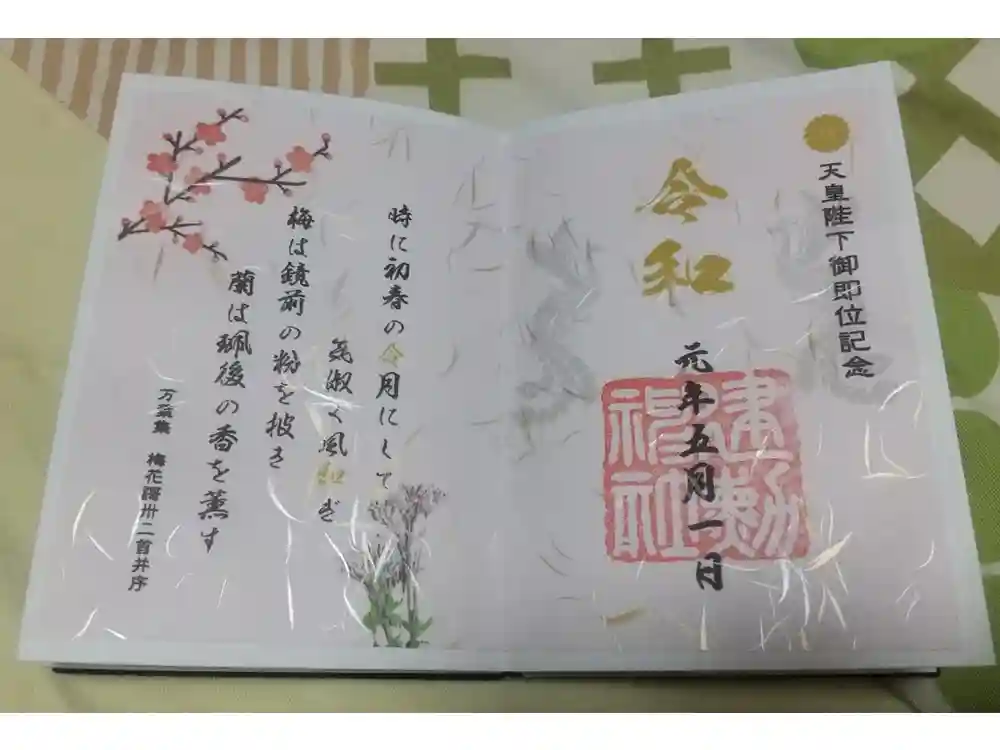 天皇陛下御即位記念
令和
元年五月一日
建勲
神社
時に初春の令月にして
気淑く風和ぎ
梅は鏡前の粉を披き
蘭は珮後の香を薫す
万葉集 梅花謌卅二首并序